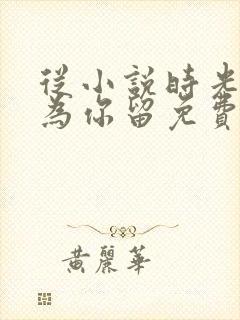 從小說時光
為你留免費
黃麗華